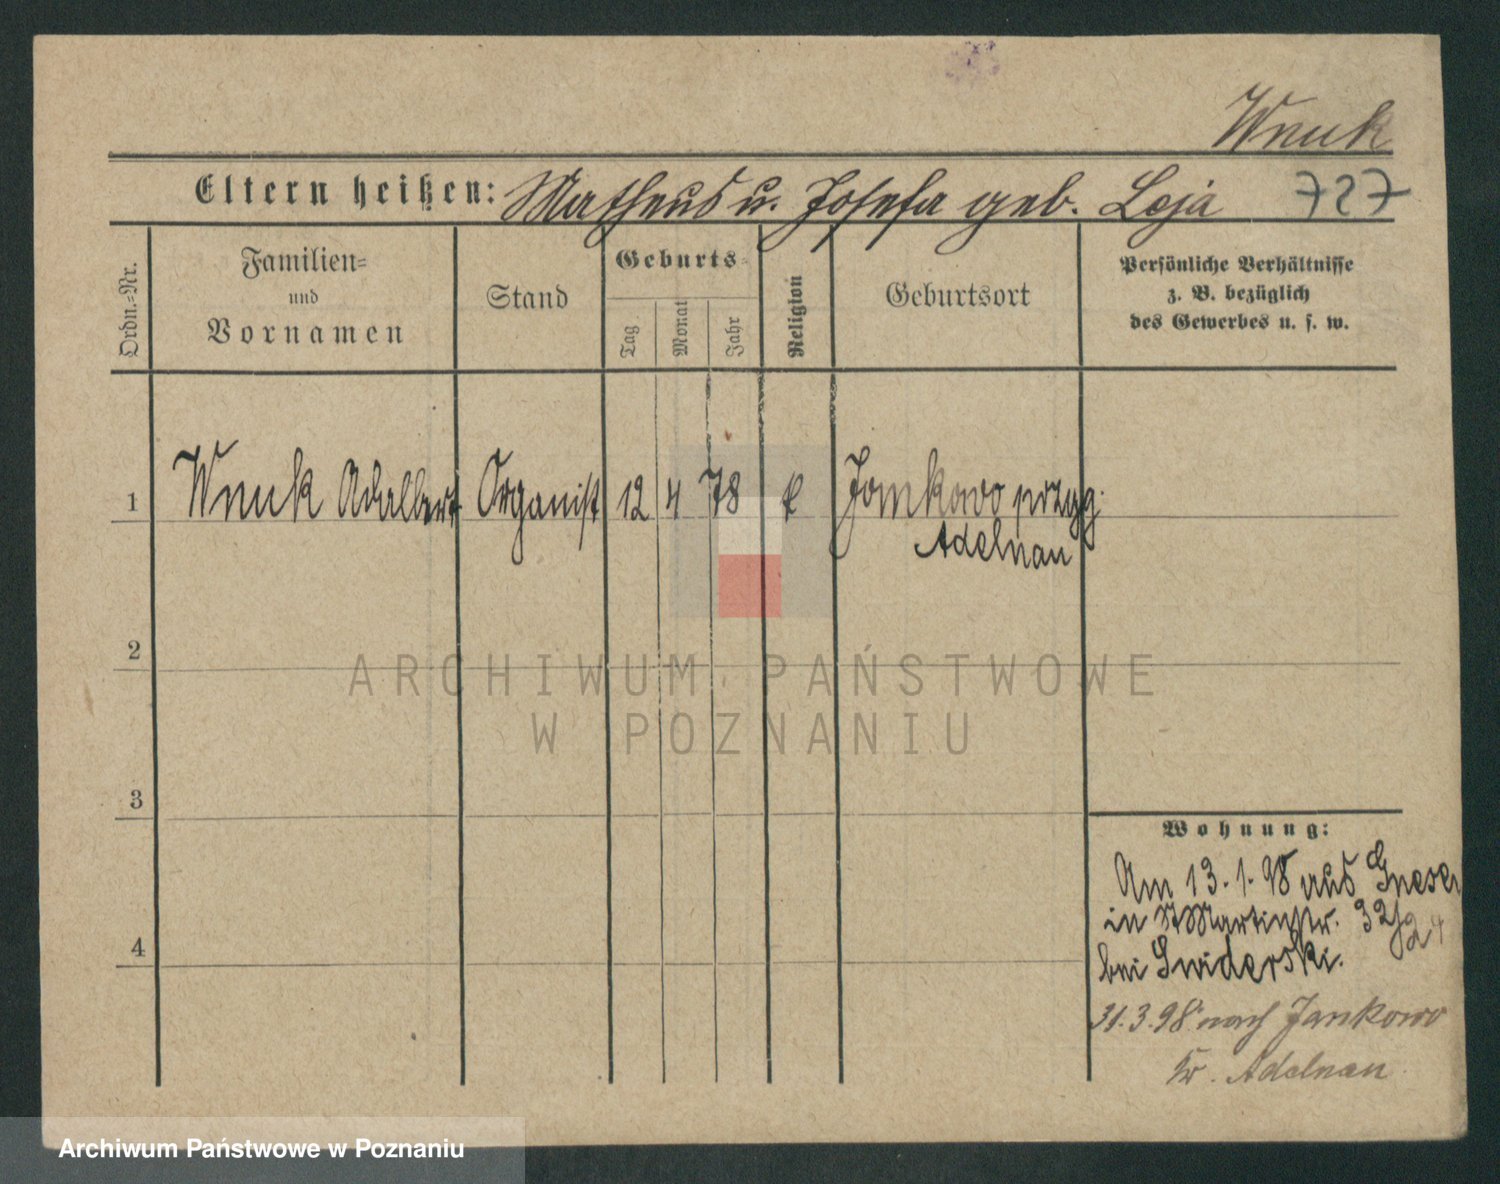 Wnuk
Eltern heißen: Matheus u. Josefa geb. Leja 727
Ordn.=Nr.
Familien=
und
Vornamen
Stand
Geburts=
Tag
Monat
Jahr
Religion
Geburtsort
Persönliche Verhältnisse
z. B. bezüglich
des Gewerbes u. s. w.
1 Wnuk Adalbert Organist 12 4 78 k Jankowo przyg.
Adelnau
2
3
4
Wohnung:
Am 13.1.98 aus Gnesen
in St Martinstr. 32
bei Swiderski.
31.3.98 nach Jankowo
Kr. Adelnau
ARCHIWUM PAŃSTWOWE
W POZNANIU
Archiwum Państwowe w Poznaniu